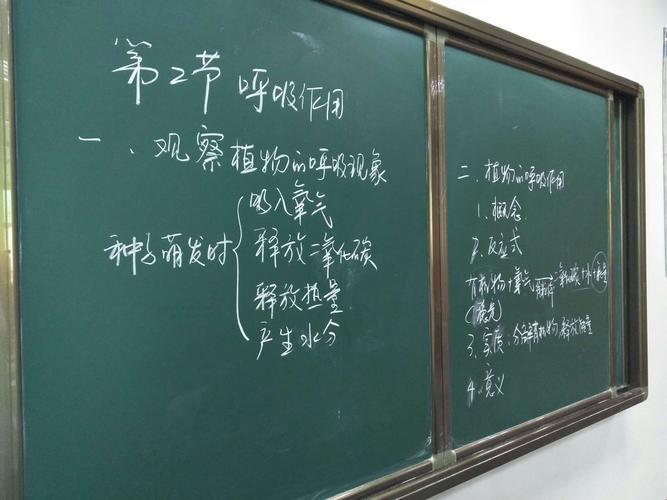 第2节 呼吸作用
一、观察植物的呼吸现象
种子萌发时
吸入氧气
释放二氧化碳
释放热量
产生水分
二、植物的呼吸作用
1、概念
2、反应式
有机物+氧气→二氧化碳+水+能量
3、实质:分解有机物,释放能量
4、意义